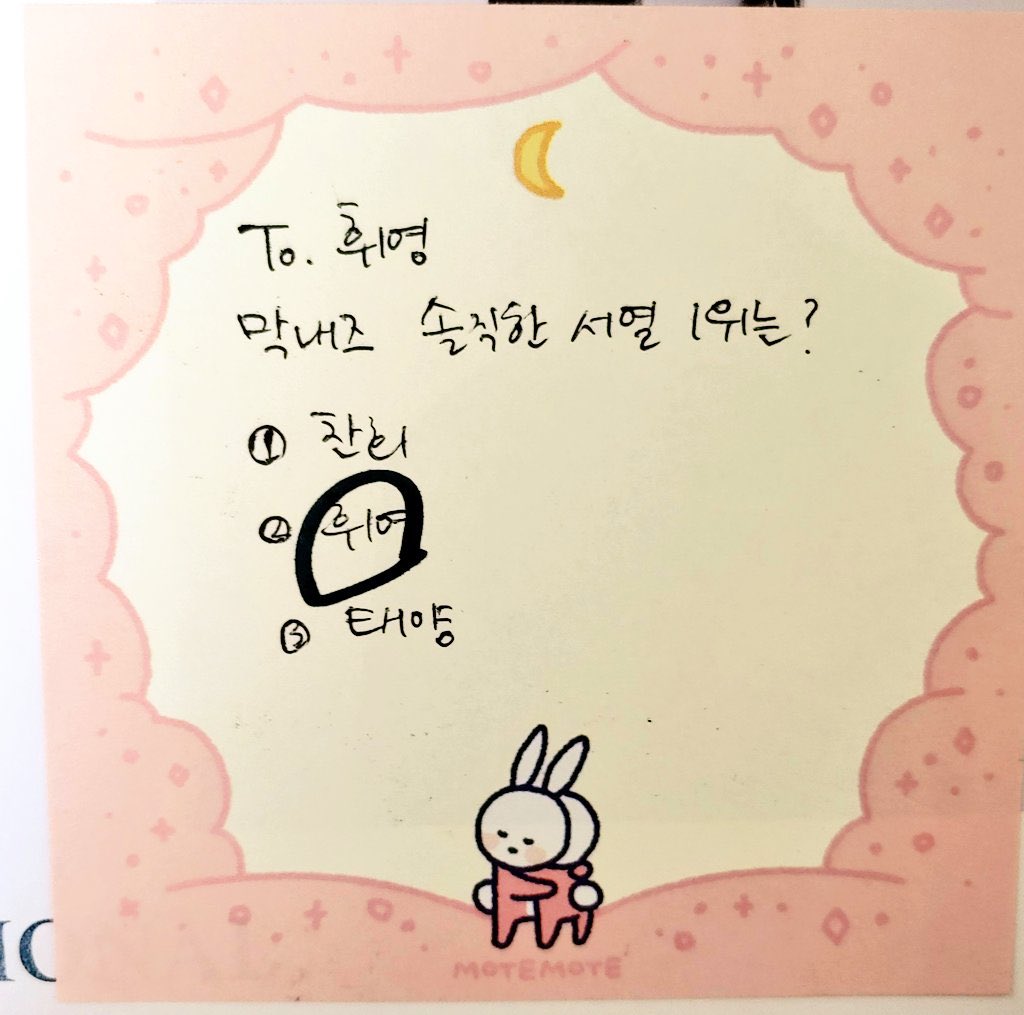 To. 휘영
막내즈 솔직한 서열 1위는?
① 찬희
② 휘영
③ 태양
MOTEMOTE